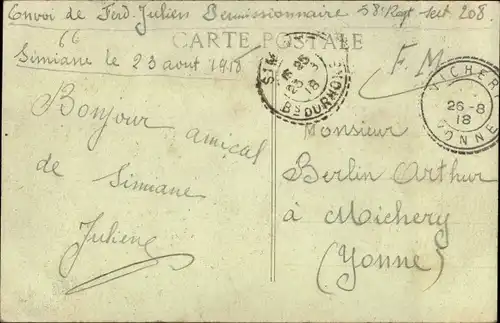 Envoi de Ferd. Julien Permissionnaire 58e Regt Sect 208
66
CARTE POSTALE
Simiane le 23 aout 1918
F. M.
SIM
23
18
BS DU RHONE
MICHERY
26-8
18
YONNE
Bonjour amical
de Simiane
Julien
Monsieur
Berlin Arthur
à Michery
(Yonne)